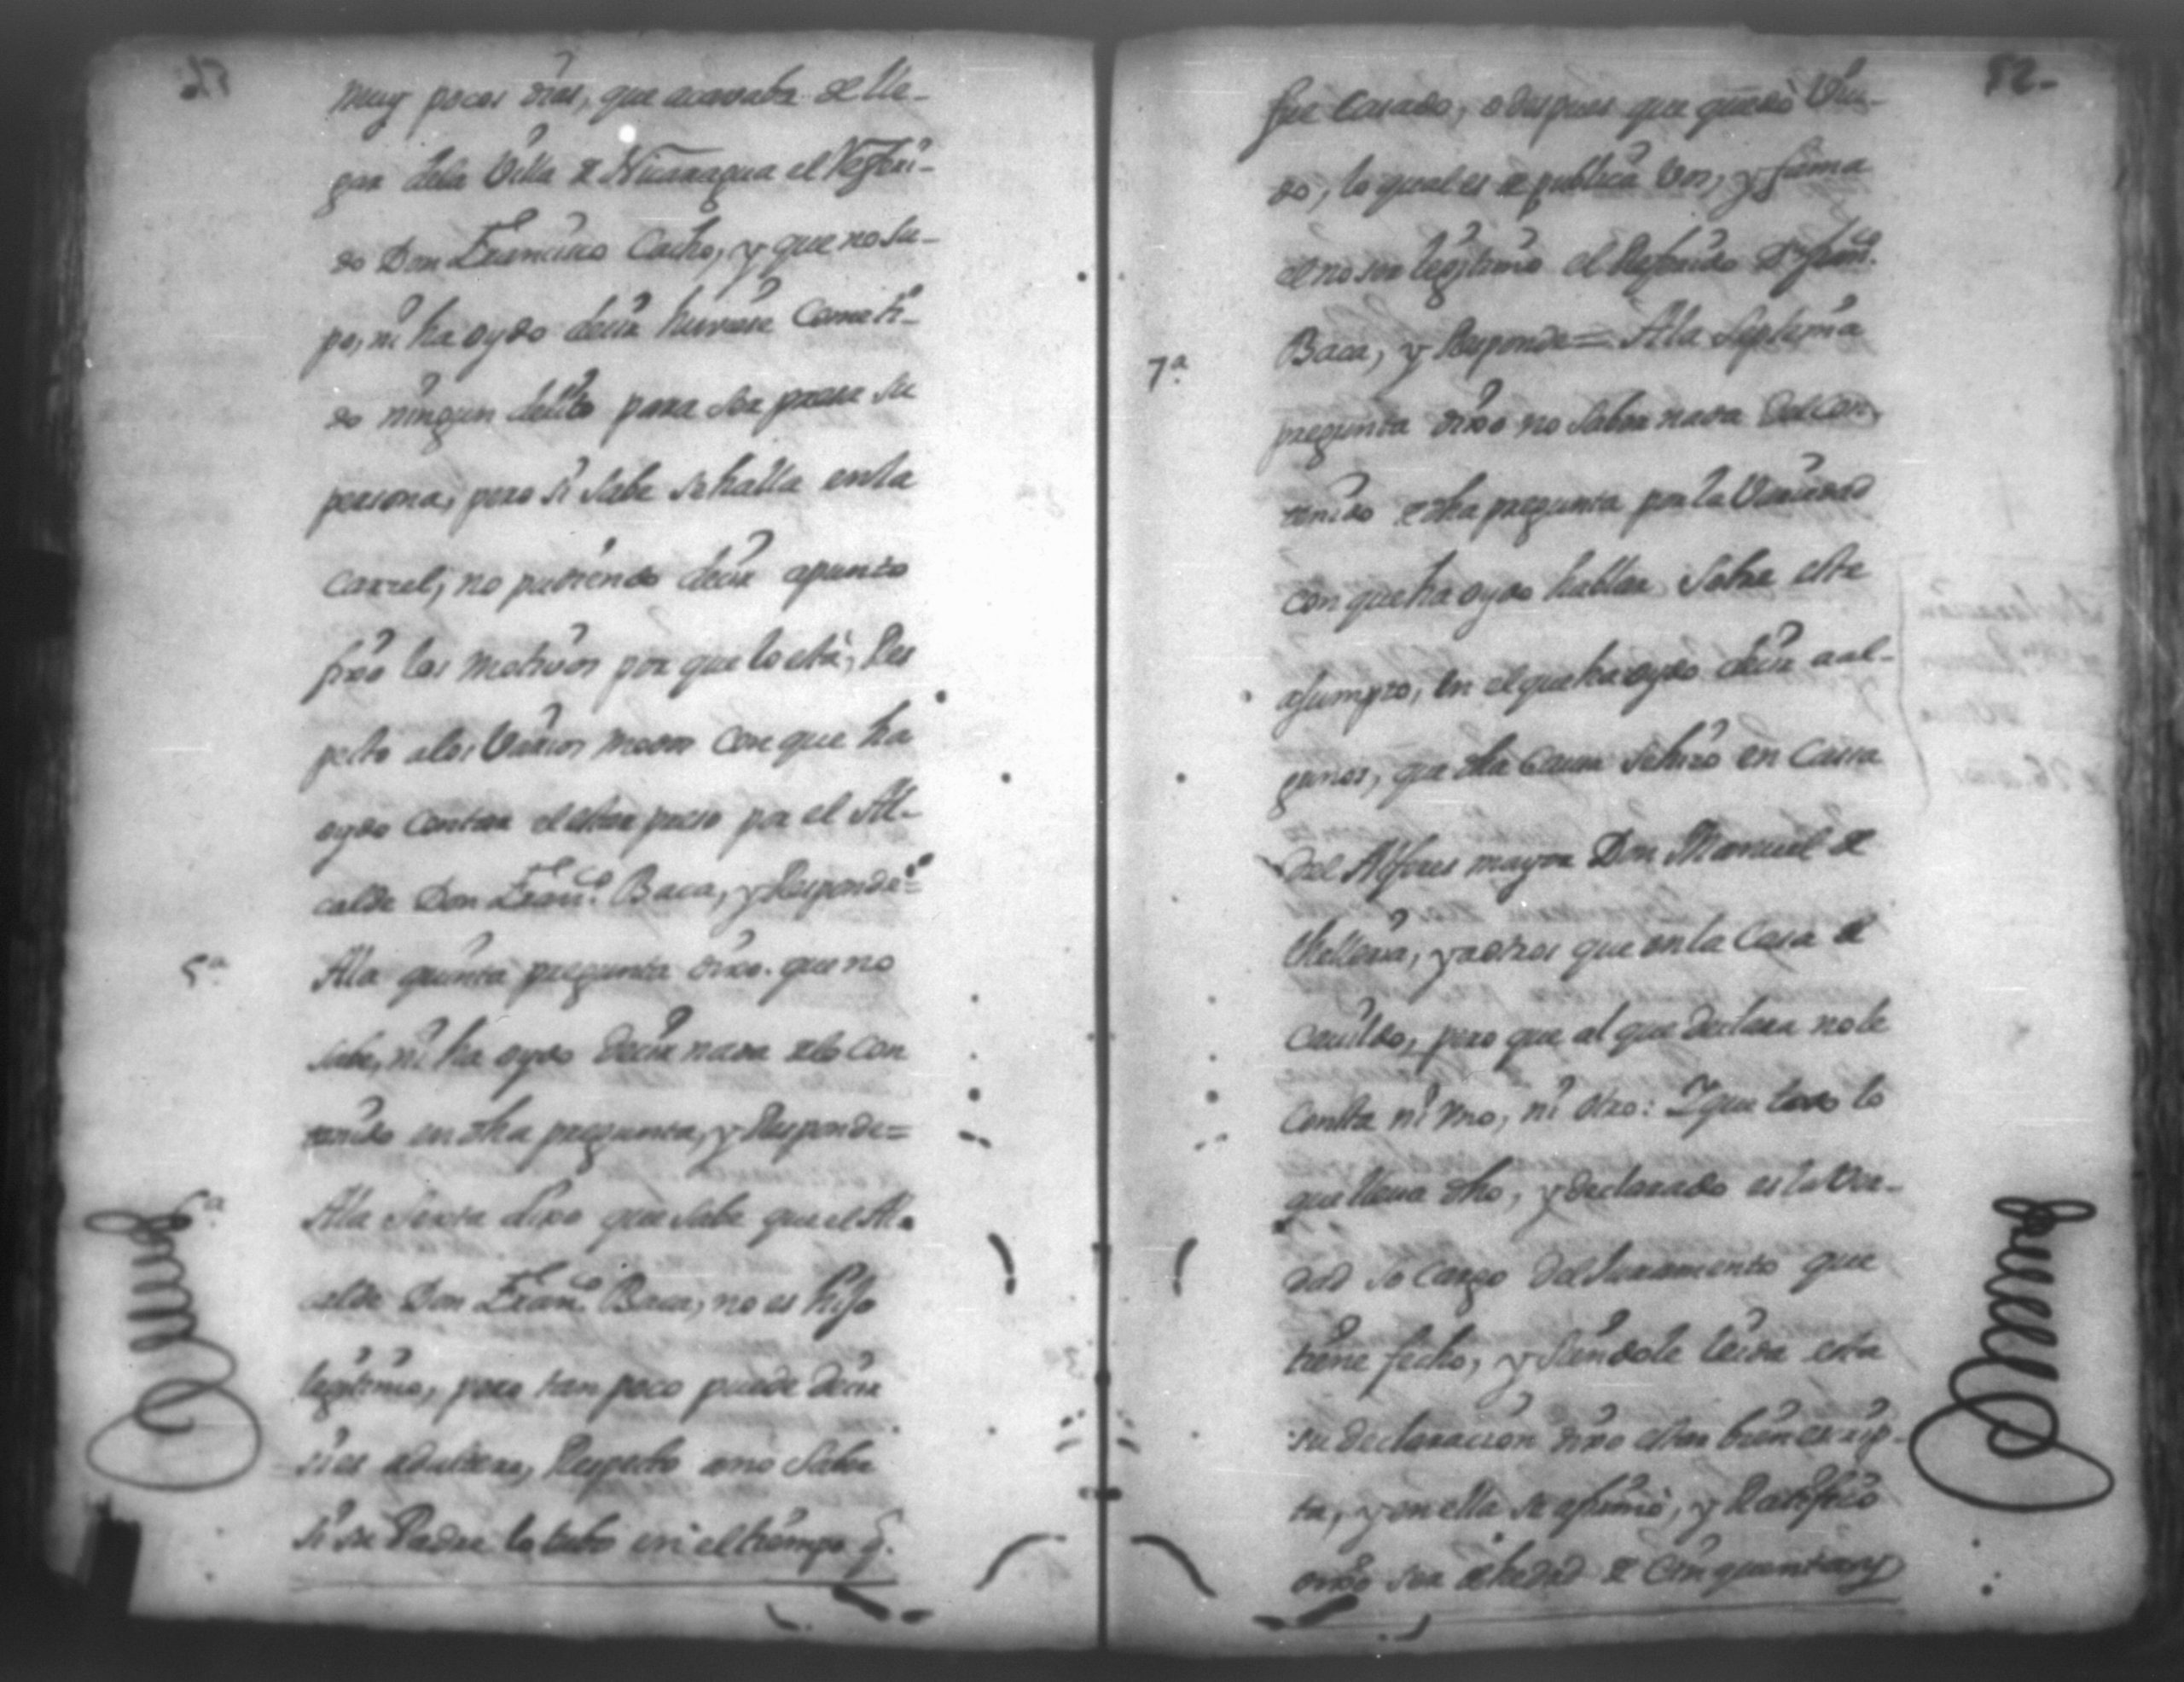 muy pocos dias, que acavaba de lle-
gar dela Villa de Nicaragua el Referi-
do Don Francisco Cacho, y que no su-
po, ni ha oydo decir huviese cometi-
do ningun delito para ser presa su
persona, pero si sabe se halla en la
carzel, no pudiendo decir apunto
fixo los motivos por que lo està, Res
pecto alos Varios modos con que ha
oydo contar el estar preso por el Al-
calde Don Franco. Baca, y Responde=
5a. Ala quinta pregunta dixo que no
sabe, ni ha oydo decir nada de lo con
tenido en dha pregunta, y Responde=
6a. Ala sexta dixo que sabe que el Al-
calde Don Franco. Baca, no es hijo
legitimo, pero tan poco puede decir
si es adulterino, Respecto a no saber
si su Padre lo tubo en el tiempo q.
52.
fue casado, o despues que quedò Viu-
do, lo qual es de publica Vos, y fama
el no ser legitimo el Referido Dn. Franco.
Baca, y Responde= Ala Septima
7a. pregunta dixo no saber nada del con
tenido de dha pregunta por la Variedad
con que ha oydo hablar sobre este
asumpto, en el que ha oydo decir a al-
gunos, que dha causa se hizo en cassa
del Alferes mayor Don Manuel de
y a otros que en la Casa de
Cavildo, pero que al que declara no le
consta ni Uno, ni otro: Y que todo lo
que lleva dho, y declarado es la Ver-
dad so cargo del Juramento que
tiene fecho, y siendole leida esta
su declaracion dixo estar bien escrip-
ta, y en ella se afirmò, y Ratificò
dixo ser de hedad de Cinquenta y